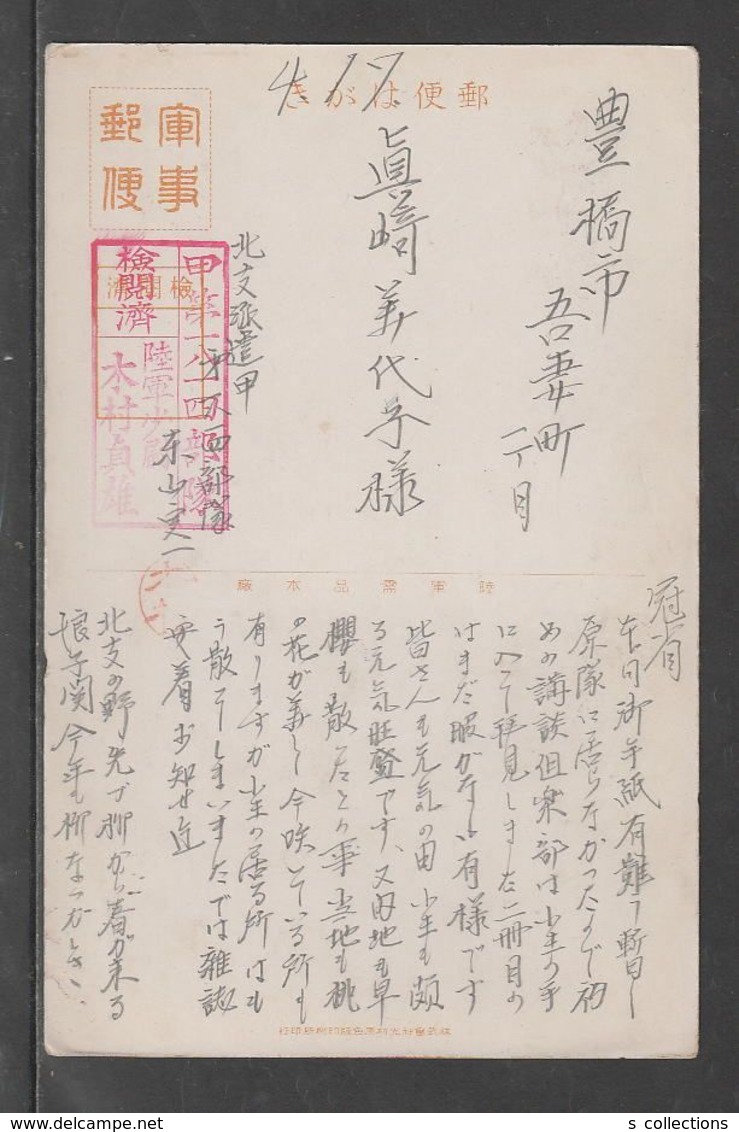 郵便はがき
4.17.
軍事
郵便
豊橋市
吾妻町
二丁目
眞崎美代子様
北支派遣甲
第一八四部隊
東山実一
甲第一八四部隊
検閲済
検閲濟
陸軍少尉
木村貞雄
陸軍需品本廠
冠省
本日御手紙有難う暫し
原隊に居らなかつたので初
めの講談倶楽部は小生の手
に入って拝見しました二冊目の
はまだ暇がない有様です
皆さんも元気の由小生も頗
る元気旺盛です、又内地も早
櫻も散ったとの事当地も桃
の花が美しく今咲いている所も
有りますが小生の居る所はも
う散ってしまいましたでは雑誌
安着お知せ迄
北支の野先づ柳から春が来る
娘子関今年も柳なつかしき
印行
s collections